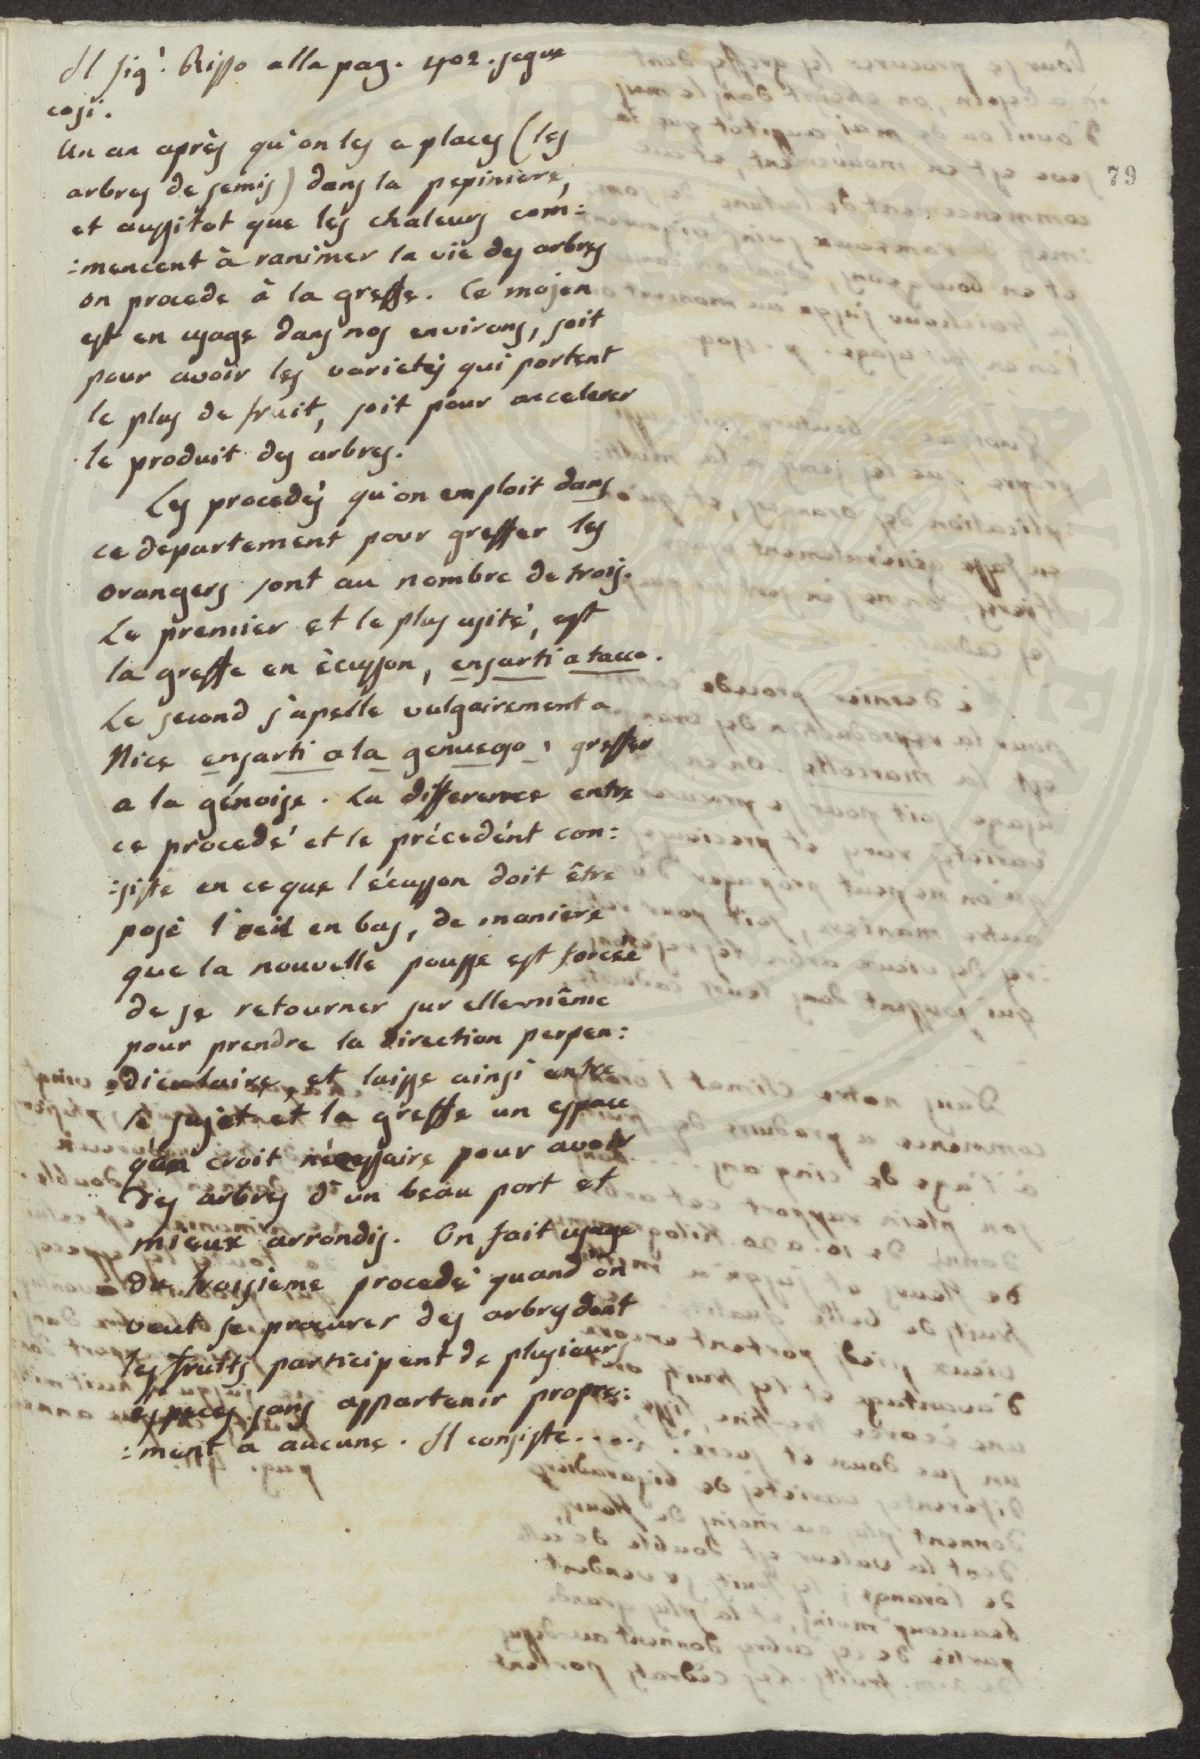 Il sig.r Risso alla pag. 402. segue
così.
Un an après qu'on les a places (les
arbres de semis) dans la pepiniere,
et aussitot que les chaleurs com:
:mencent à ranimer la vie des arbres
on procede à la greffe. Ce mojen
est en usage dans nos environs, soit
pour avoir les varietés qui portent
le plus de fruit, soit pour accelerer
le produit des arbres.
Les procedés qu'on emploit dans
ce departement pour greffer les
orangers sont au nombre de trois.
Le premier et le plus usité, est
la greffe en ècusson, ensarti a tacco.
Le second s'apelle vulgairement a
Nice ensarti a la genuego, greffer
a la génoise. La difference entre
ce procedé et le précedént con:
:siste en ce que l'écusson doit être
posè l'oeil en bas, de maniere
que la nouvelle pousse est forcée
de se retourner sur elle même
pour prendre la direction perpen:
:diculaire, et laisse ainsi entre
le sujet et la greffe un espace
qu'on croit nécessaire pour avoir
des arbres d'un beau port et
mieux arrondis. On fait usage
du troisieme procedé quand on
veut se procurer des arbres dont
les fruits participent de plusieurs
especes sans appartenir propre:
:ment a aucune. Il consiste....
79